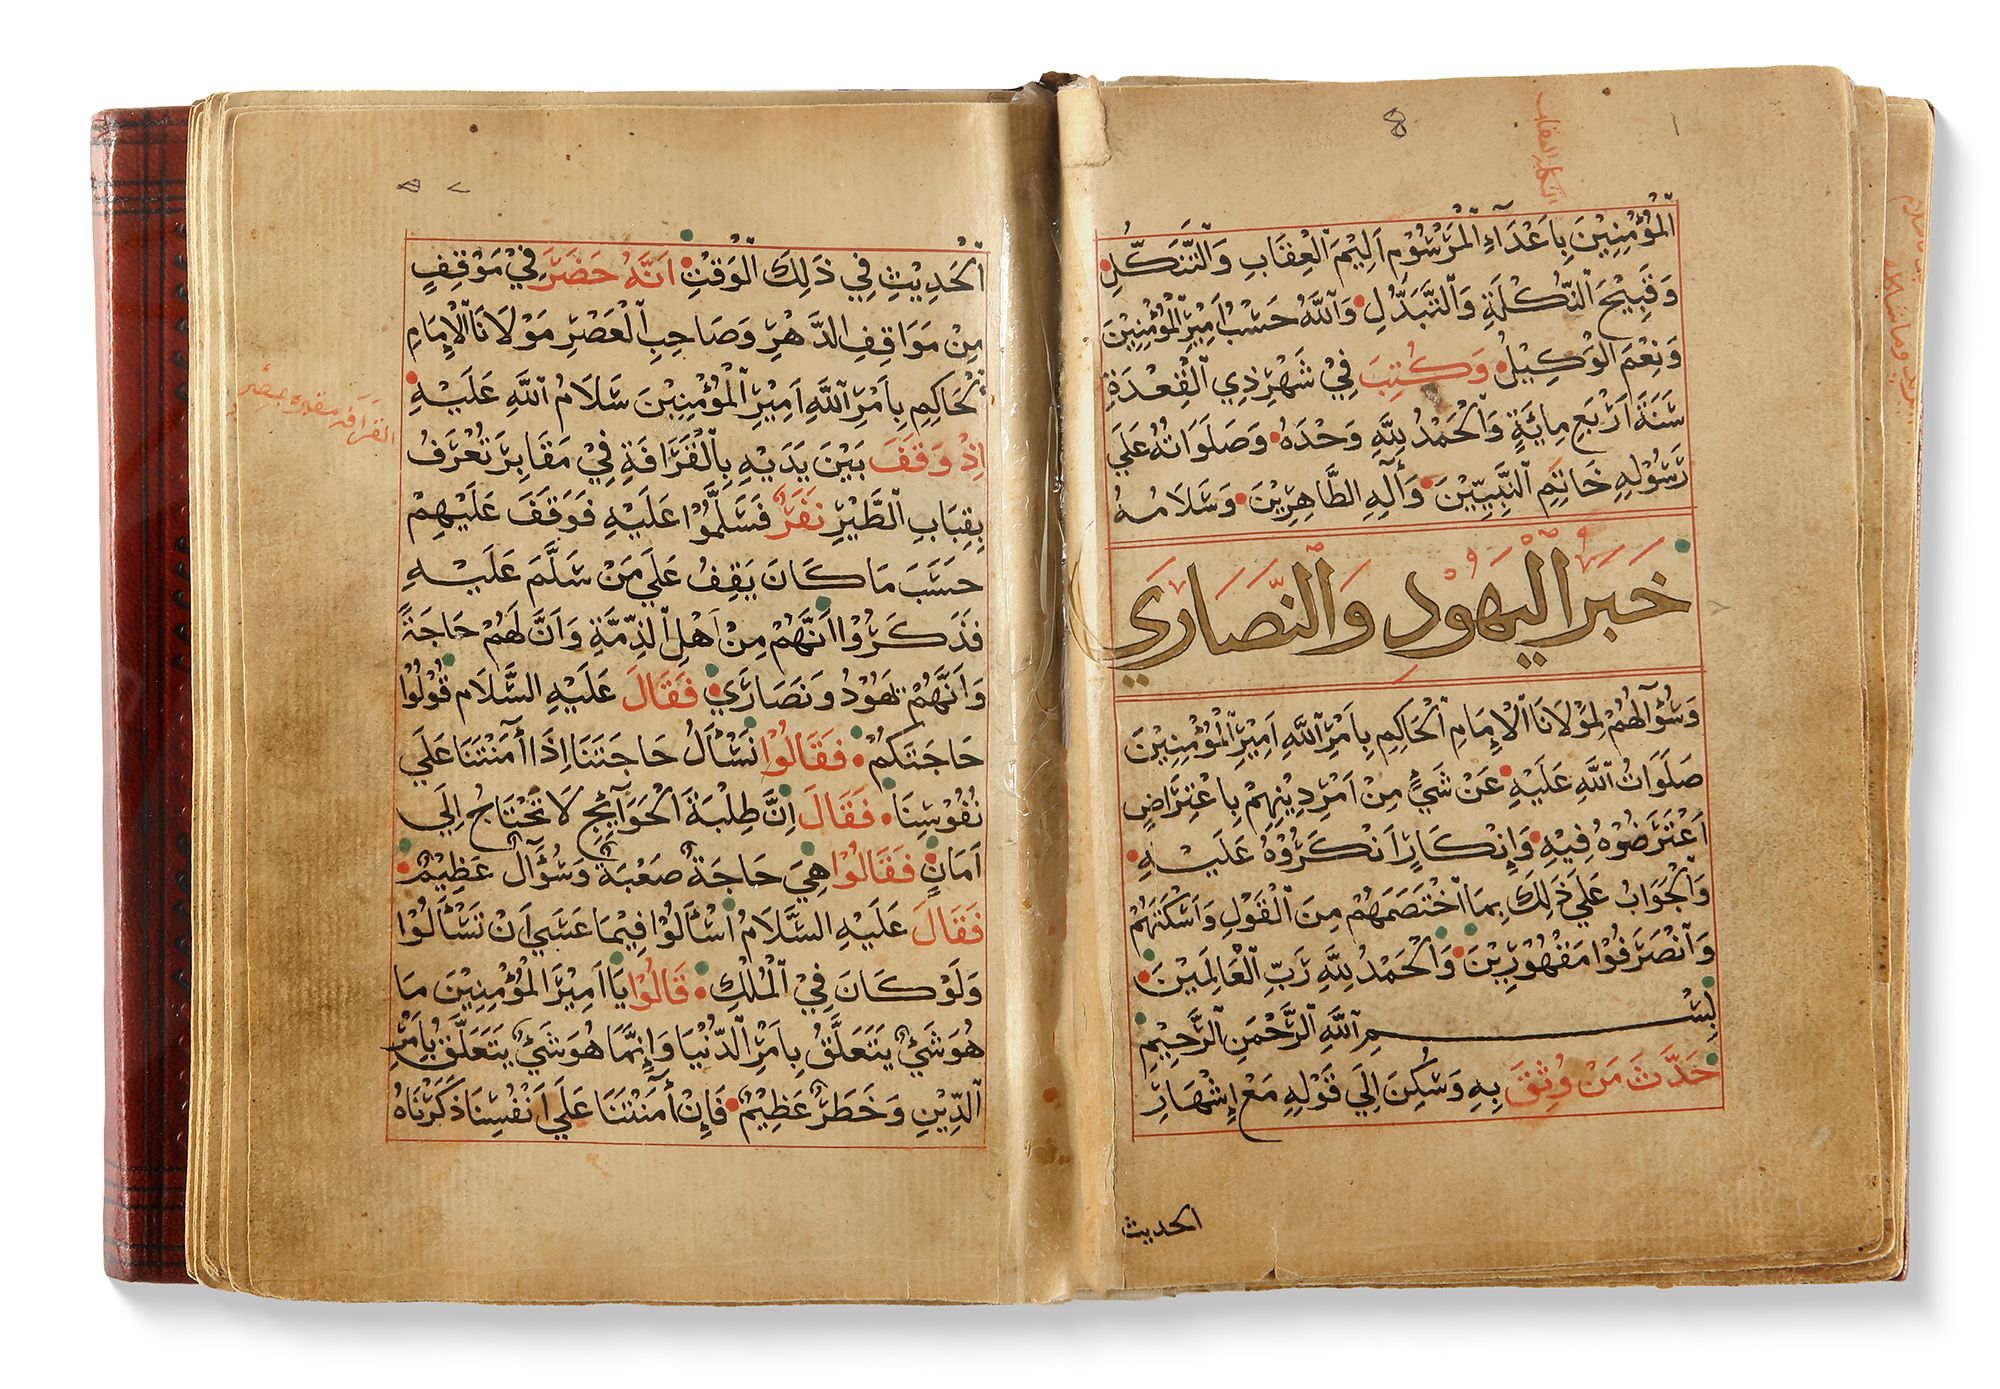 8
ٱلْمُؤْمِنِيْنَ بِاَعْدَآءِ ٱلْمَرْسُوْمِ اَلِيْمَ ٱلْعِقَابِ وَٱلتَّنَكُّلِ
وَقَبِيْحَ ٱلنُّكْلَةِ وَٱلتَّبَدُّلِ وَٱللَّهُ حَسْبُ اَمِيْرِ ٱلْمُؤْمِنِيْنَ
وَنِعْمَ الْوَكِيْلُ وَكُتِبَ فِيْ شَهْرِ ذِي ٱلْقَعْدَةِ
سَنَةَ اَرْبَعِ مِايَةٍ وَٱلْحَمْدُ لِلَّهِ وَحْدَهُ وَصَلَوَاتُهُ عَلَي
رَسُوْلِهِ خَاتَمِ ٱلنَّبِيِّيْنَ وَأٓلِهِ الطَّاهِرِيْنَ وَسَلَامُهُ
خَبَرُ الْيَهُوْدِ وَالنَّصَارَي
وَسُؤَآلُهُمْ لِمَوْلَانَا ٱلْاِمَامِ ٱلْحَاكِمِ بِاَمْرِ ٱللَّهِ اَمِيْرِ ٱلْمُؤْمِنِيْنَ
صَلَوَاتُ ٱللَّهِ عَلَيْهِ عَنْ شَيْءٍ مِنْ اَمْرِ دِيْنِهِمْ بِاعْتِرَاضٍ
اَعْتَرَضُوْهُ فِيْهِ وَاِنْكَارٍ اَنْكَرُوْهُ عَلَيْهِ
وَٱلْجَوَابُ عَلَي ذَلِكَ بِمَا ٱخْتَصَمَهُمْ مِنَ ٱلْقَوْلِ وَاَسْكَتَهُمْ
وَٱنْصَرَفُوْا مَقْهُوْرِيْنَ وَٱلْحَمْدُ لِلَّهِ رَبِّ ٱلْعَالَمِيْنَ
بِسْمِ ٱللَّهِ ٱلرَّحْمَنِ ٱلرَّحِيْمِ
حَدَّثَ مَنْ وُثِقَ بِهِ وَسُكِنَ اِلَي قَوْلِهِ مَعْ اِشْهَارِ
الحديث
ٱلْحَدِيْثِ فِي ذَلِكَ ٱلْوَقْتِ اَنَّهُ حَضَرَ فِيْ مَوْقِفٍ
مِنْ مَوَاقِفِ الدَّهْرِ وَصَاحِبِ ٱلْعَصْرِ مَوْلَانَا ٱلْاِمَامِ
ٱلْحَاكِمِ بِاَمْرِ ٱللَّهِ اَمِيْرِ ٱلْمُؤْمِنِيْنَ سَلَامُ ٱللَّهِ عَلَيْهِ
اِذْ وَقَفَ بَيْنَ يَدَيْهِ بِٱلْقَرَافَةِ فِيْ مَقَابِرَ تُعْرَفُ
بِقِبَابِ ٱلطَّيْرِ نَفَرٌ فَسَلَّمُوْا عَلَيْهِ فَوَقَفَ عَلَيْهِمْ
حَسَبَ مَا كَانَ يَقِفُ عَلَي مَنْ سَلَّمَ عَلَيْهِ
فَذَكَرُوْا اَنَّهُمْ مِنْ اَهْلِ ٱلذِّمَّةِ وَاَنَّ لَهُمْ حَاجَةً
وَاَنَّهُمْ يَهُوْدُ وَنَصَارَي فَقَالَ عَلَيْهِ السَّلَامُ قُوْلُوْا
حَاجَتَكُمْ فَقَالُوْا نَسْأَلُ حَاجَتَنَا اِذَا اٰمَنْتَنَا عَلَي
نُفُوْسِنَا فَقَالَ اِنَّ طِلْبَةَ ٱلْحَوَآئِجِ لَا تَحْتَاجُ اِلَي
اَمَانٍ فَقَالُوْا هِيَ حَاجَةٌ صَعْبَةٌ وَسُؤَآلٌ عَظِيْمٌ
فَقَالَ عَلَيْهِ السَّلَامُ اسْأَلُوْا فِيْمَا عَسَي اَنْ تَسْأَلُوْا
وَلَوْ كَانَ فِيْ ٱلْمُلْكِ قَالُوْا يَا اَمِيْرَ ٱلْمُؤْمِنِيْنَ مَا
هُوَ شَيْءٌ يَتَعَلَّقُ بِاَمْرِ ٱلدُّنْيَا وَاِنَّمَا هُوَ شَيْءٌ يَتَعَلَّقُ بِاَمْرِ
ٱلدِّيْنِ وَخَطَرٌ عَظِيْمٌ فَاِنْ اٰمَنْتَنَا عَلَي اَنْفُسِنَا ذَكَرْنَاهُ
القرافه مقابر بمصر